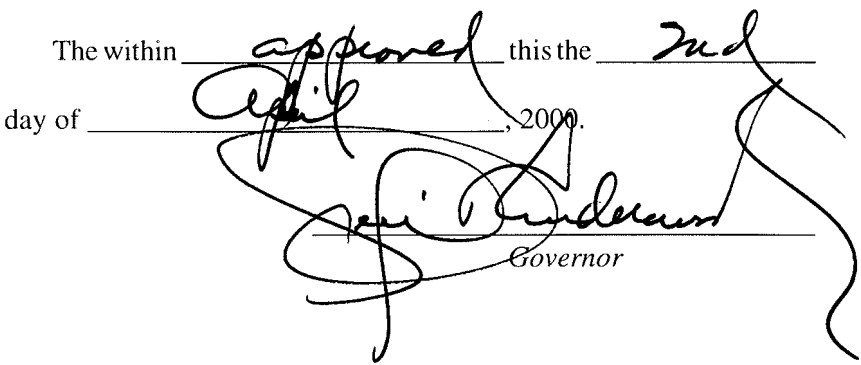 The within approved this the 2nd
day of April, 2000.
Governor